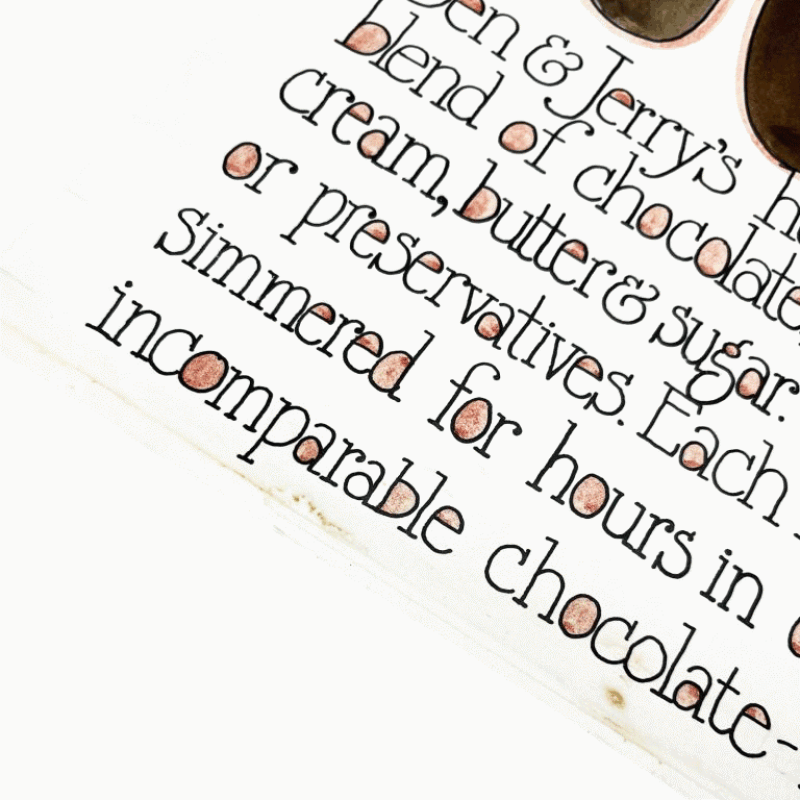 Ben & Jerry's
blend of chocolate,
cream, butter & sugar.
or preservatives. Each
Simmered for hours in
incomparable chocolate-